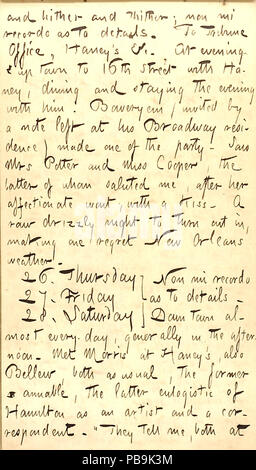 and hither and thither; non mi
recordo as to details. To Tribune
Office, Haney's &c. At evening
up town to 16th street with Ha-
ney, dining and staying the evening
with him. Boweryem (invited by
a note left at his Broadway resi-
dence) made one of the party. Saw
Mrs Potter and Miss Cooper, the
latter of whom saluted me, after her
affectionate wont with a kiss. A
raw drizzly night to turn out in,
making one regret New Orleans
weather.
26. Thursday } Non mi recordo
27. Friday } as to details.
28. Saturday } Down town al-
most every day, generally in the after-
noon. Met Morris at Haney's, also
Bellew both as usual, the former
amiable, the latter eulogistic of
Hamilton as an artist and a cor-
respondent. "They tell me, both at
alamy
PB9K3M